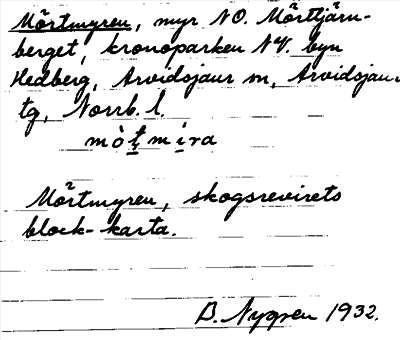 Mörtmyren, myr NO. Mörttjärn-
berget, kronoparken NV. byn
Hedberg, Arvidsjaur sn, Arvidsjaur
tg, Norrb. l.
mòt̩mi̩ra
Mörtmyren, skogsrevirets
block-karta.
B. Nygren 1932.